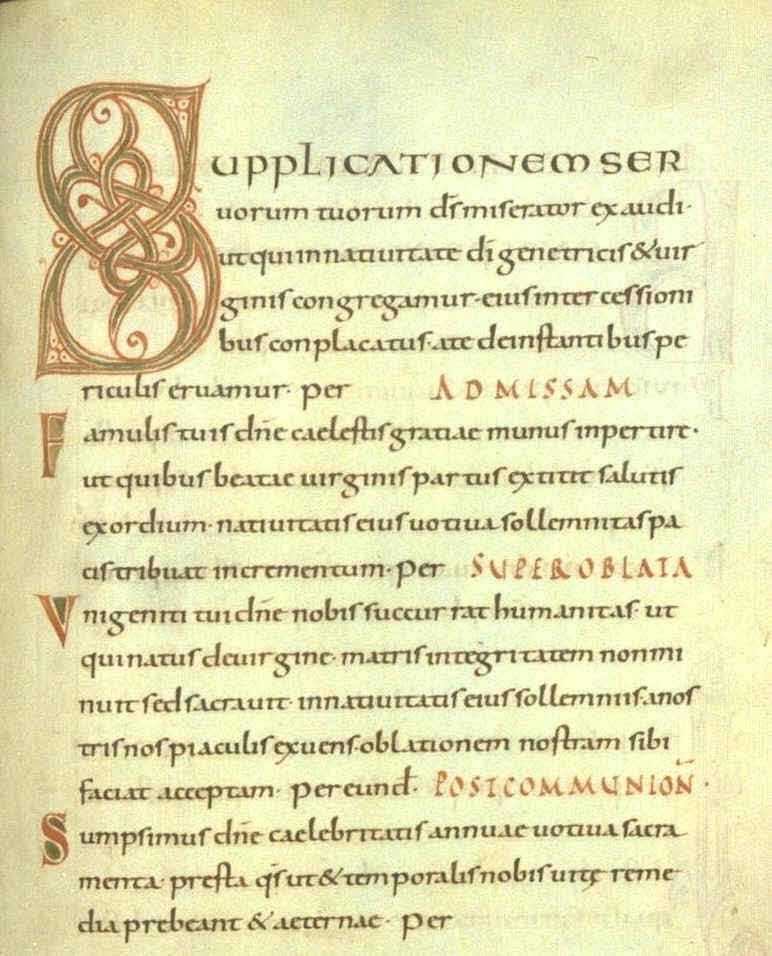 SUPPLICATIONEM SER
uorum tuorum ds miserator exaudi·
ut qui in natiuitate di genetricis & uir
ginis congregamur· eius intercessioni
bus conplacatus· a te de instantibus pe
riculis eruamur· per AD MISSAM
Famulis tuis dne caelestis gratiae munus inpertire·
ut quibus beatae uirginis partus extitit salutis
exordium· natiuitatis eius uotiua sollemnitas pa
cis tribuat incrementum· per SUPER OBLATA
Vnigeniti tui dne nobis succurrat humanitas· ut
qui natus de uirgine· matris integritatem non mi
nuit sed sacrauit· in natiuitatis eius sollemniis· a nos
tris nos piaculis exuens· oblationem nostram sibi
faciat acceptam· per eund· POST COMMUNION·
Sumpsimus dne caelebritatis annuae uotiua sacra
menta· presta qs ut & temporalis nobis uitę reme
dia prębeant & aeternae· per